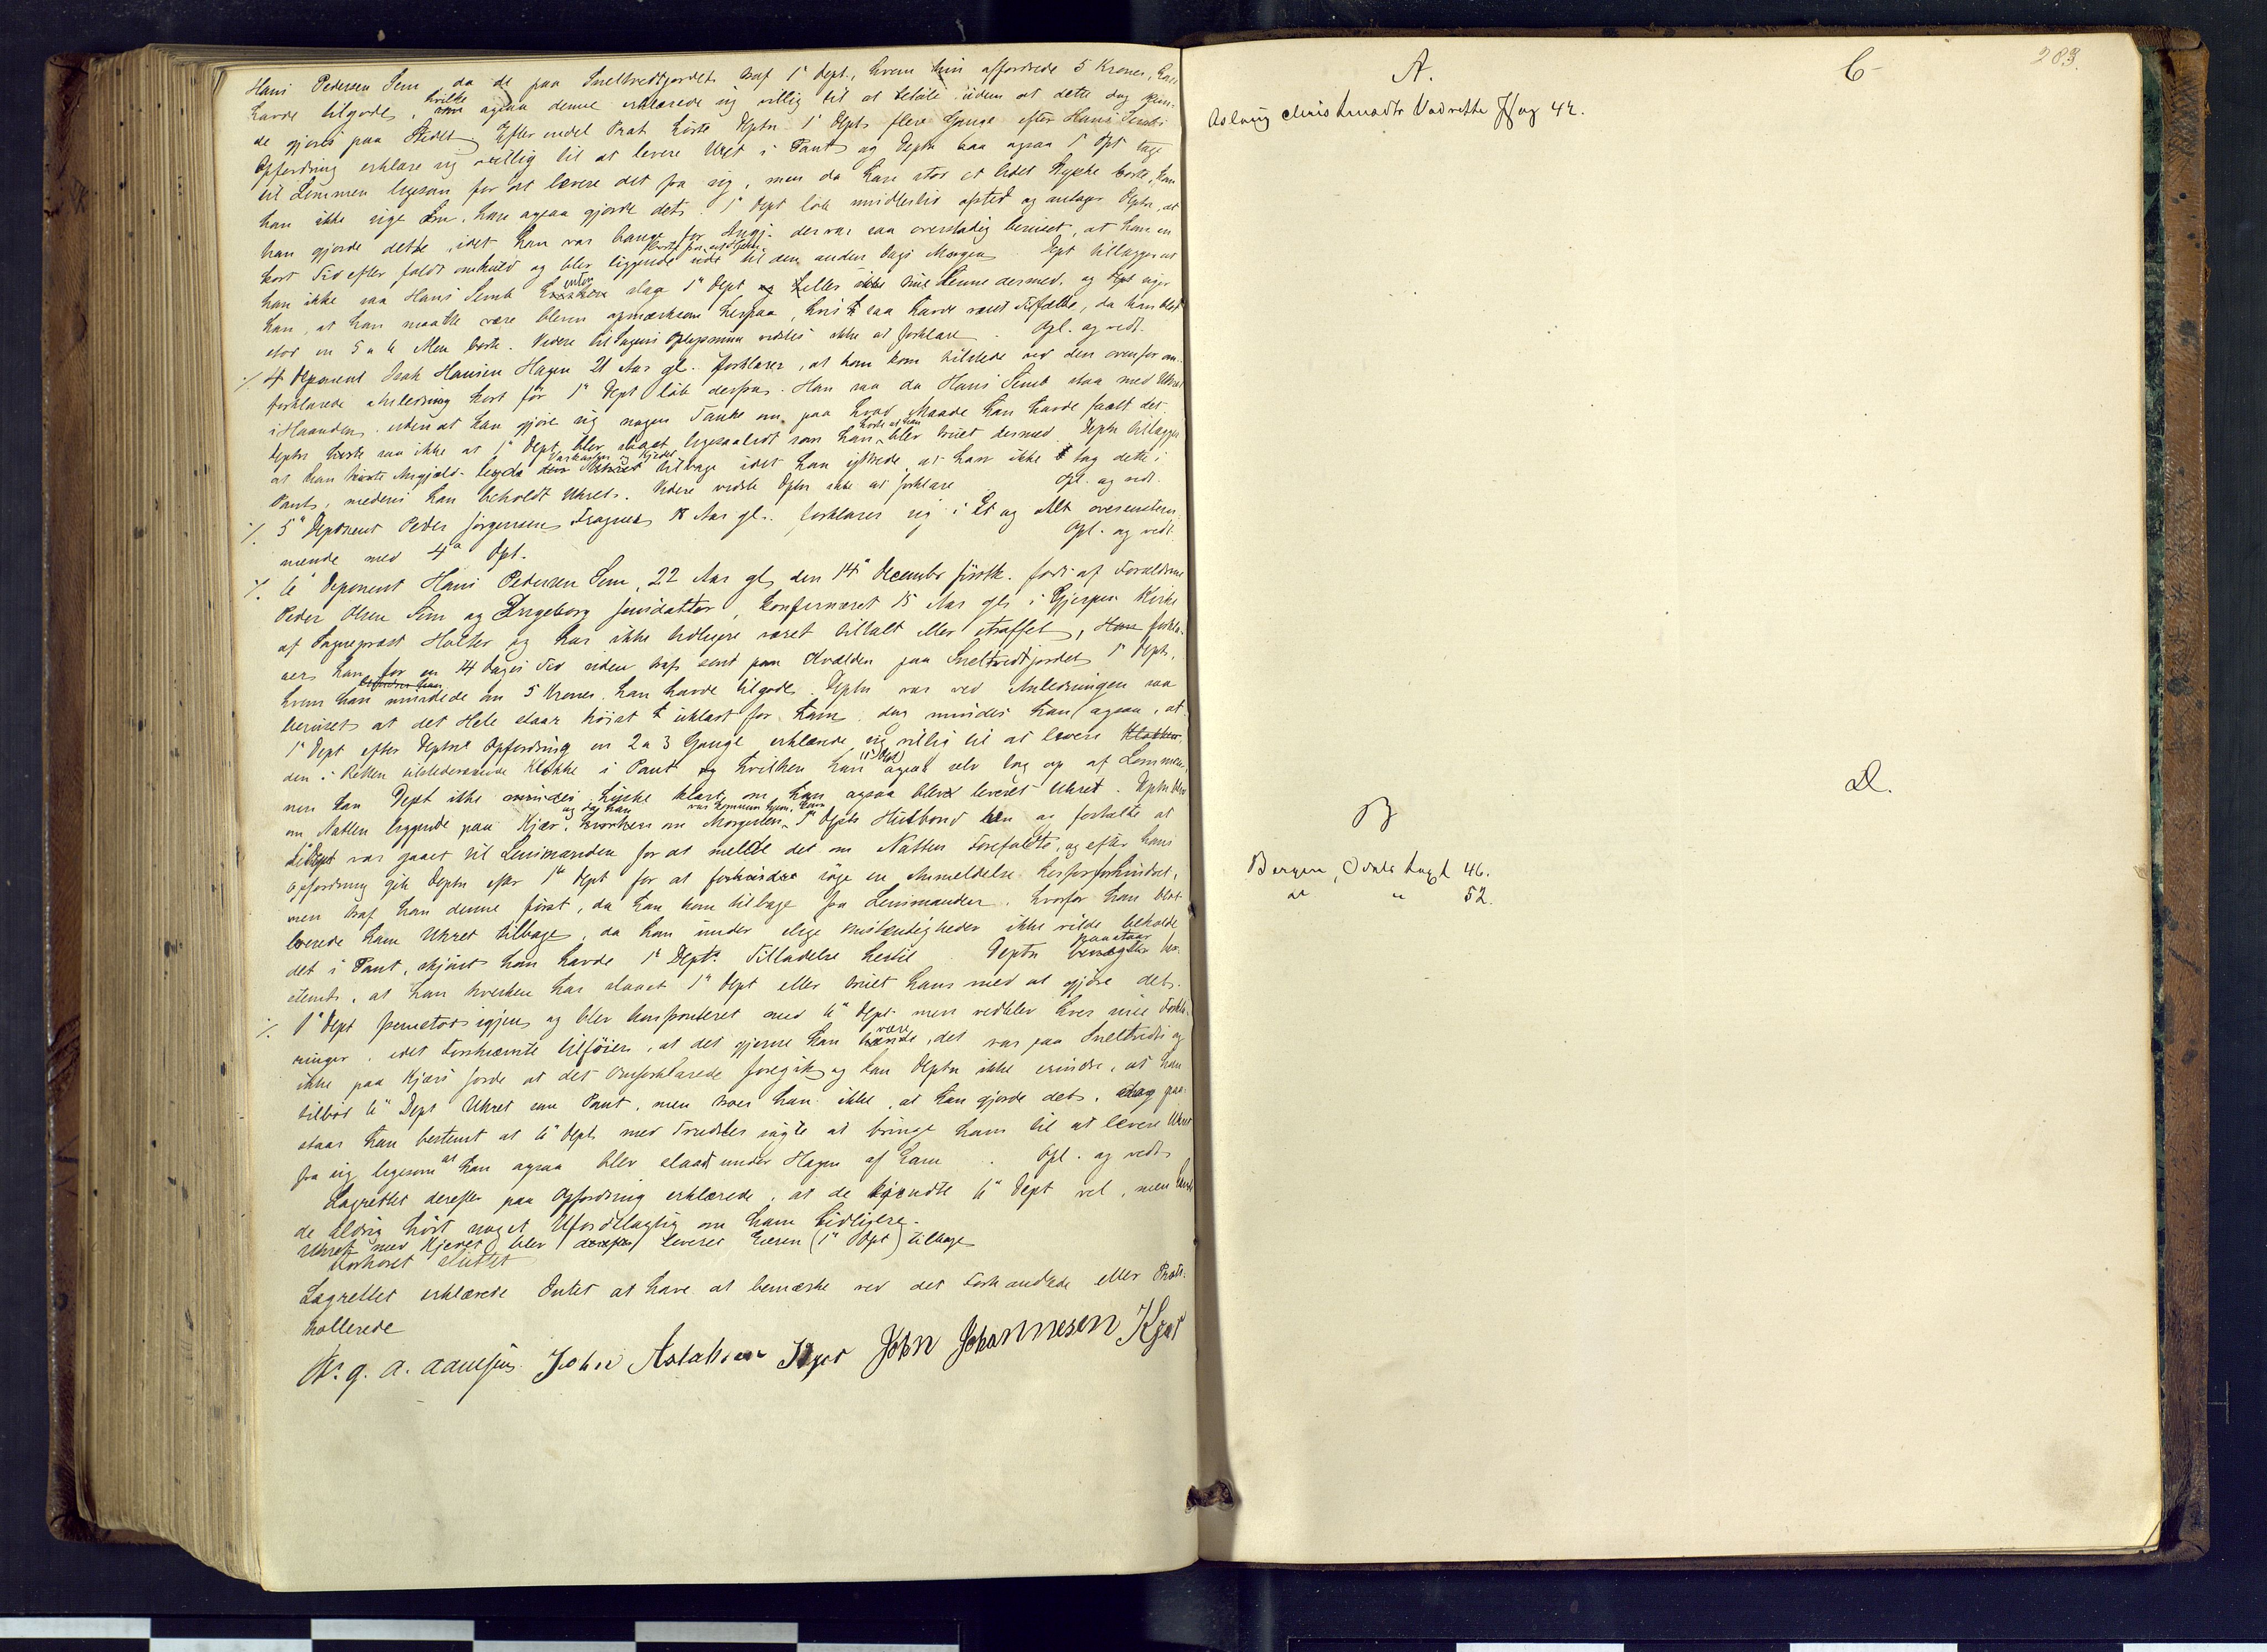 Hans Pedersen Sem da de paa Sneltvedtjordet traf 1ste Dept., hvem hin affordrede 5 Kroner, han
havde tilgode, hvilke ogsaa denne erklærede sig villig til at betale uden at dette dog kun-
de gjøres paa Stedet. Efter endel Prat hørte Deptn 1ste Dept. flere Gange efter Hans Sembs
Opfordring erklære sig villig til at levere Uhret i Pant og Deptn saa ogsaa 1ste Dpt tage
til Lommen ligesom for at levere det fra sig, men da han stod et lidet Stykke borte, kan
han ikke sige om han ogsaa gjorde det. 1ste Dept løb imidlertid afsted og antager Deptn, at
han gjorde dette, idet han var bange for Angj. der var saa overstadig beruset, at han en
kort Tid efter faldt omkuld og blev liggende ude til den anden Dags Morgen. Dept tillægger at
han ikke saa Hans Semb enten slage 1ste Dept eller true denne dermed, og Dept siger
han, at han maatte være bleven opmærksom herpaa, hvis saa havde været Tilfælde, da han blot
stod en 5 a 6 Alen borte. Videre til Sagens Oplysning vidstes ikke at forklare. Opl. og vedt.
4 Deponent Isak Hansen Hagen 21 Aar gl. forklarer, at han kom tilstede ved den ovenfor om-
forklarede Anledning kort før 1ste Dept løb derfra. Han saa da Hans Semb staa med Uhret
i Haanden uden at han gjør sig nogen Tanke om, paa hvad Maade han havde faaet det.
Deptn saa ikke at 1ste Dept. blev slaget ligesaalidt som han hørte at han blev truet dermed. Deptn tillægger
at han hørte Angjæld. byde Kjedet tilbage idet han yttrede at han ikke tog dette i
Pant, medens han beholdt Uhret. Videre vidste Dptn ikke at forklare. Opl. og vedt.
5te Deponent Peder Jørgensen Fragnes 18 Aar gl. forklarer sig i Et og Alt overensstem-
mende med 4de Dpt. Opl. og vedt.
6te Deponent Hans Pedersen Sem, 22 Aar gl. den 14de December førstk. født af Forældrene
Peder Olsen Sem og Ingeborg Jensdatter, konfirmeret 15 Aar gl. i Gjerpen Kirke
af Sognepræst Halter og har ikke tidligere været tiltalt eller straffet, forkla-
rer han for en 14 Dages Tid siden traf sent paa Kvælden paa Sneltvedtjordet 1ste Dept.,
hvem han mindede om 5 Kroner, han havde tilgode. Deptn var ved Anledningen saa
beruset at det Hele staar høist uklart for ham, dog mindes han ogsaa, at
1ste Dept efter Deptns Opfordring en 2 a 3 Gange erklærede sig villig til at levere
den i Retten tilstedeværende Klokke i Pant og hvilken han (1ste Dpt) ogsaa selv tog op af Lommen,
men kan Dept ikke mindes klart om han ogsaa blev leveret Uhret. Deptn blev
om Natten liggende paa Kjær, og da han om Morgenen var kommen hjem, kom 1ste Dpts Husbond hen og fortalte at
1ste Dept var gaaet til Lensmanden for at melde det om Natten Forefaldte, og efter hans
Opfordring gik Deptn efter 1ste Dept for at søge en Anmeldelse herfor forhindret,
men traf han denne først, da han kom tilbage fra Lensmanden, hvorfor han blot
leverede ham Uhret tilbage, da han under slige Omstændigheder ikke vilde beholde
det i Pant, skjønt han havde 1ste Depts Tilladelse hertil. Deptn paastaar be-
stemt, at han hverken har slaaet 1ste Dept eller truet ham med at gjøre det.
1ste Dept fremstod igjen og blev konfronteret med 6te Dept. men vedblev hver sine Forkla-
ringer, idet Førstnævnte tilføier, at det gjerne kan være, det var paa Sneltvedts og
ikke paa Kjærs Jorde at det Omforklarede foregik og kan Deptn ikke erindre, at han
tilbød 6te Dept Uhret som Pant, men tror han ikke, at han gjorde det, dog paa-
staar han bestemt at 6te Dept. med Trudsler søgte at bringe ham til at levere Uhret
fra sig ligesom at han ogsaa blev slaaet under Hagen af ham. Opl. og vedt.
Lagrettet derefter paa Opfordring erklærede, at de kjendte 6te Dept vel, men havde
de aldrig hørt noget Ufordelagtig om ham tidligere.
Uhret med Kjedet blev leveret Eieren (1ste Dpt) tilbage
Forhøret sluttet
Lagrettet erklærede Intet at have at bemærke ved det Forhandlede eller Proto-
kollerede
John Kjær John Johannesen Kjær
283.
A.
C
Aslaug Christensdtr Vadrette Pag 42.
D.
B
Bergan, Odals tugt 46.
" " 52.